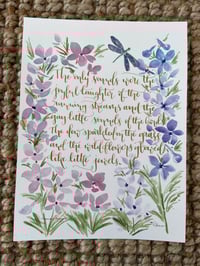 The only sounds were the
joyful laughter of the
running streams and the
gay little sounds of the birds
The dew sparkled in the grass
and the wildflowers glowed
like little jewels.